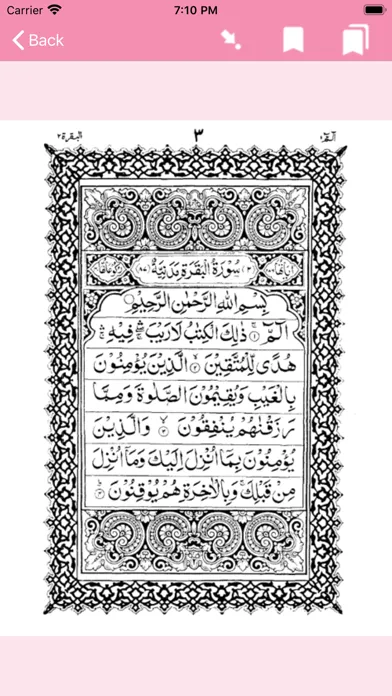 Carrier 7:10 PM
Back
البقرة ٢ ٣ الٓمّٓ ١
سُوْرَةُ الْبَقَرَةِ مَدَنِيَّةٌ
بِسْمِ اللّٰهِ الرَّحْمٰنِ الرَّحِيْمِ
الٓمّٓ ۚ‏ ١ ذٰلِكَ الْكِتٰبُ لَا رَيْبَ ۛ فِيْهِ ۛ
هُدًى لِّلْمُتَّقِيْنَ ٢ الَّذِيْنَ يُؤْمِنُوْنَ
بِالْغَيْبِ وَيُقِيْمُوْنَ الصَّلٰوةَ وَمِمَّا
رَزَقْنٰهُمْ يُنْفِقُوْنَ ٣ وَالَّذِيْنَ
يُؤْمِنُوْنَ بِمَآ اُنْزِلَ اِلَيْكَ وَمَآ اُنْزِلَ
مِنْ قَبْلِكَ ۚ وَبِالْاٰخِرَةِ هُمْ يُوْقِنُوْنَ ٤